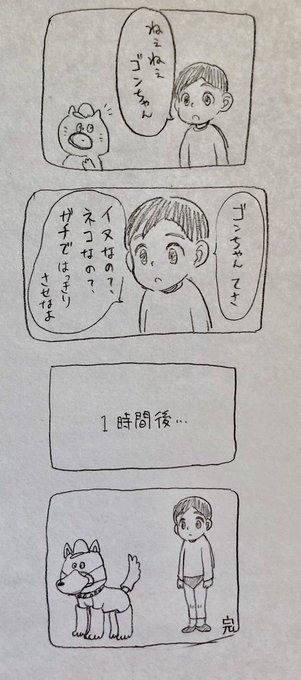 ねぇねぇ
ゴンちゃん
ゴンちゃんてさ
イヌなの?
ネコなの?
ガチではっきり
させなよ
1時間後…
完